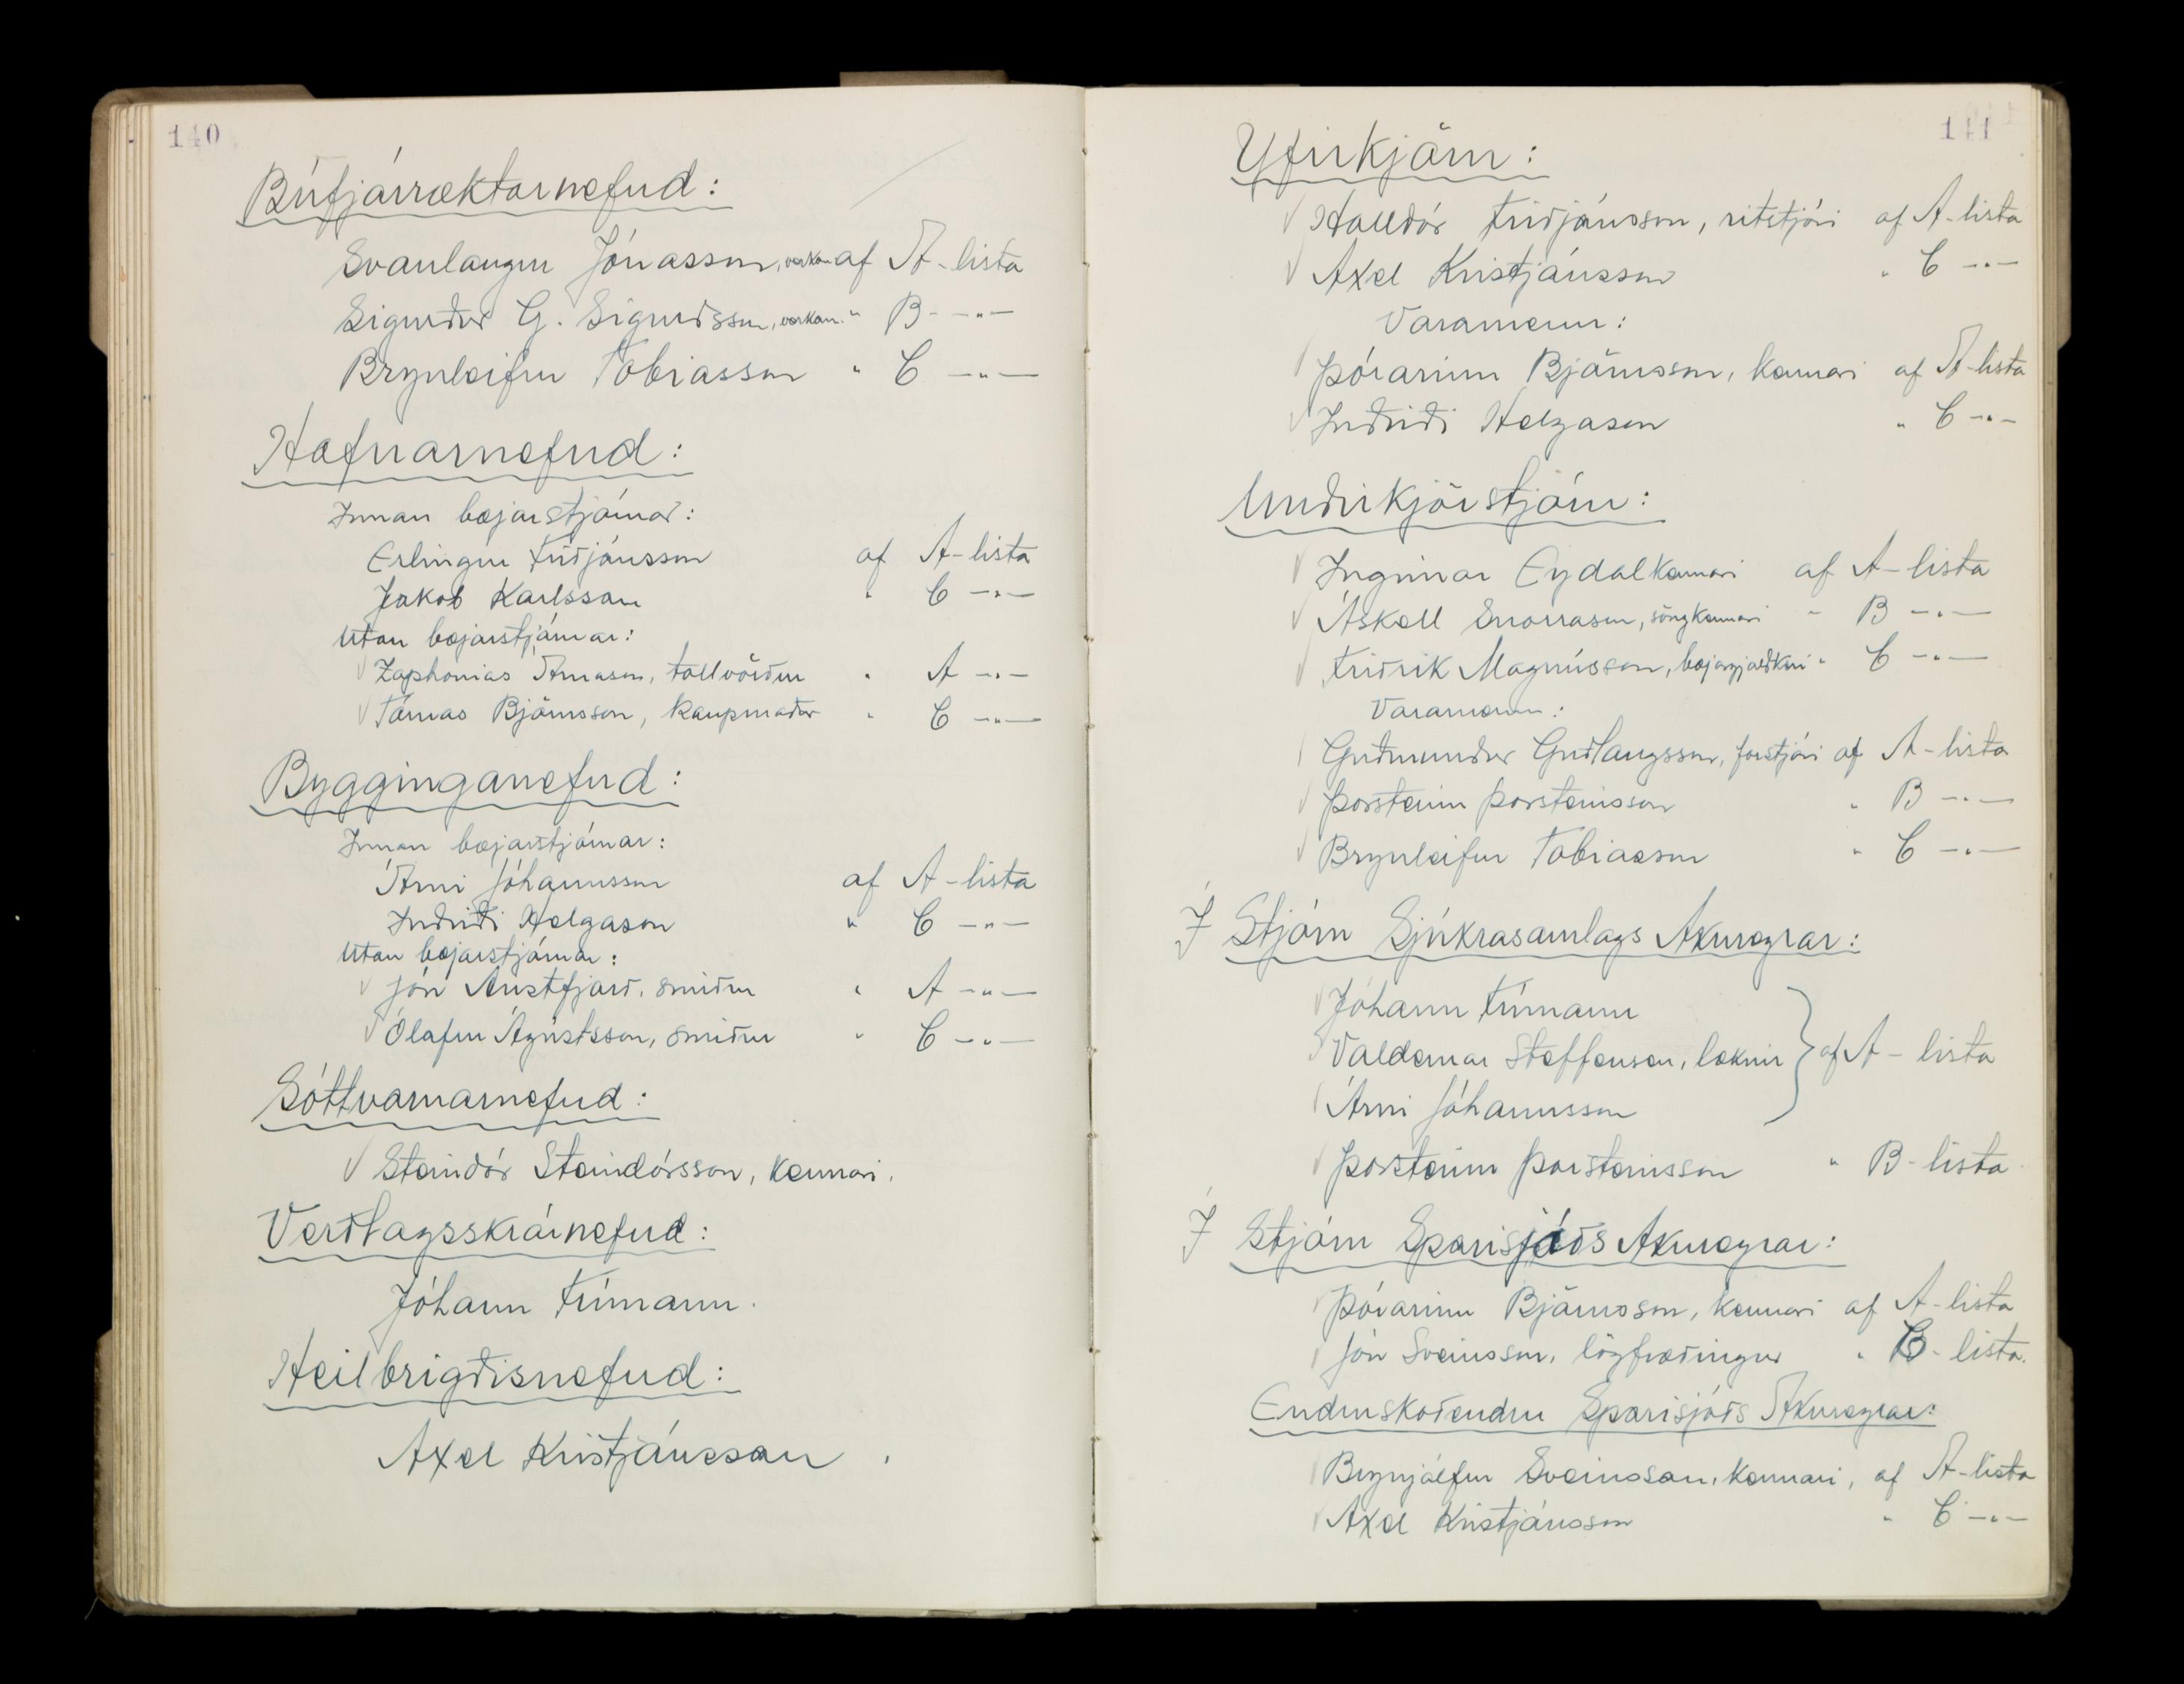 140
Búfjárræktarnefnd:
Svanlaugur Jónasson, verkam. af A-lista
Sigurður G. Sigurðsson, verkam. " B- -"-
Brynleifur Tobiasson " C -"-
Hafnarnefnd:
Innan bæjarstjórnar:
Erlingur Friðjónsson af A-lista
Jakob Karlsson " C -"-
Utan bæjarstjórnar:
Zaphonías Árnason, tollvörður " A -"-
Tómas Björnsson, kaupmaður " C -"-
Bygginganefnd:
Innan bæjarstjórnar:
Árni Jóhannsson af A-lista
Indriði Helgason " C -"-
Utan bæjarstjórnar:
Jón Austfjörð, smiður " A -"-
Ólafur Ágústsson, smiður " C -"-
Sóttvarnarnefnd:
Steindór Steindórsson, kennari.
Verðlagsskrárnefnd:
Jóhann Frímann.
Heilbrigðisnefnd:
Axel Kristjánsson.
141
Yfirkjörn:
Halldór Friðjónsson, ritstjóri af A-lista
Axel Kristjánsson " C -"-
Varamenn:
Þórarinn Björnsson, kennari af A-lista
Indriði Helgason " C -"-
Undirkjörstjórn:
Ingimar Eydal kennari af A-lista
Áskell Snorrason, söngkennari " B -"-
Friðrik Magnússon, bæjargjaldkeri " C -"-
Varamenn:
Guðmundur Guðlaugsson, forstjóri af A-lista
Þorsteinn Þorsteinsson " B -"-
Brynleifur Tobiasson " C -"-
Í Stjórn Sjúkrasamlags Akureyrar:
Jóhann Frímann
Valdemar Steffensen, læknir } af A-lista
Árni Jóhannsson
Þorsteinn Þorsteinsson " B-lista
Í Stjórn Sparisjóðs Akureyrar:
Þórarinn Björnsson, kennari af A-lista
Jón Sveinsson, lögfræðingur " B-lista.
Endurskoðendur Sparisjóðs Akureyrar:
Brynjólfur Sveinsson, kennari, af A-lista
Axel Kristjánsson " C -"-